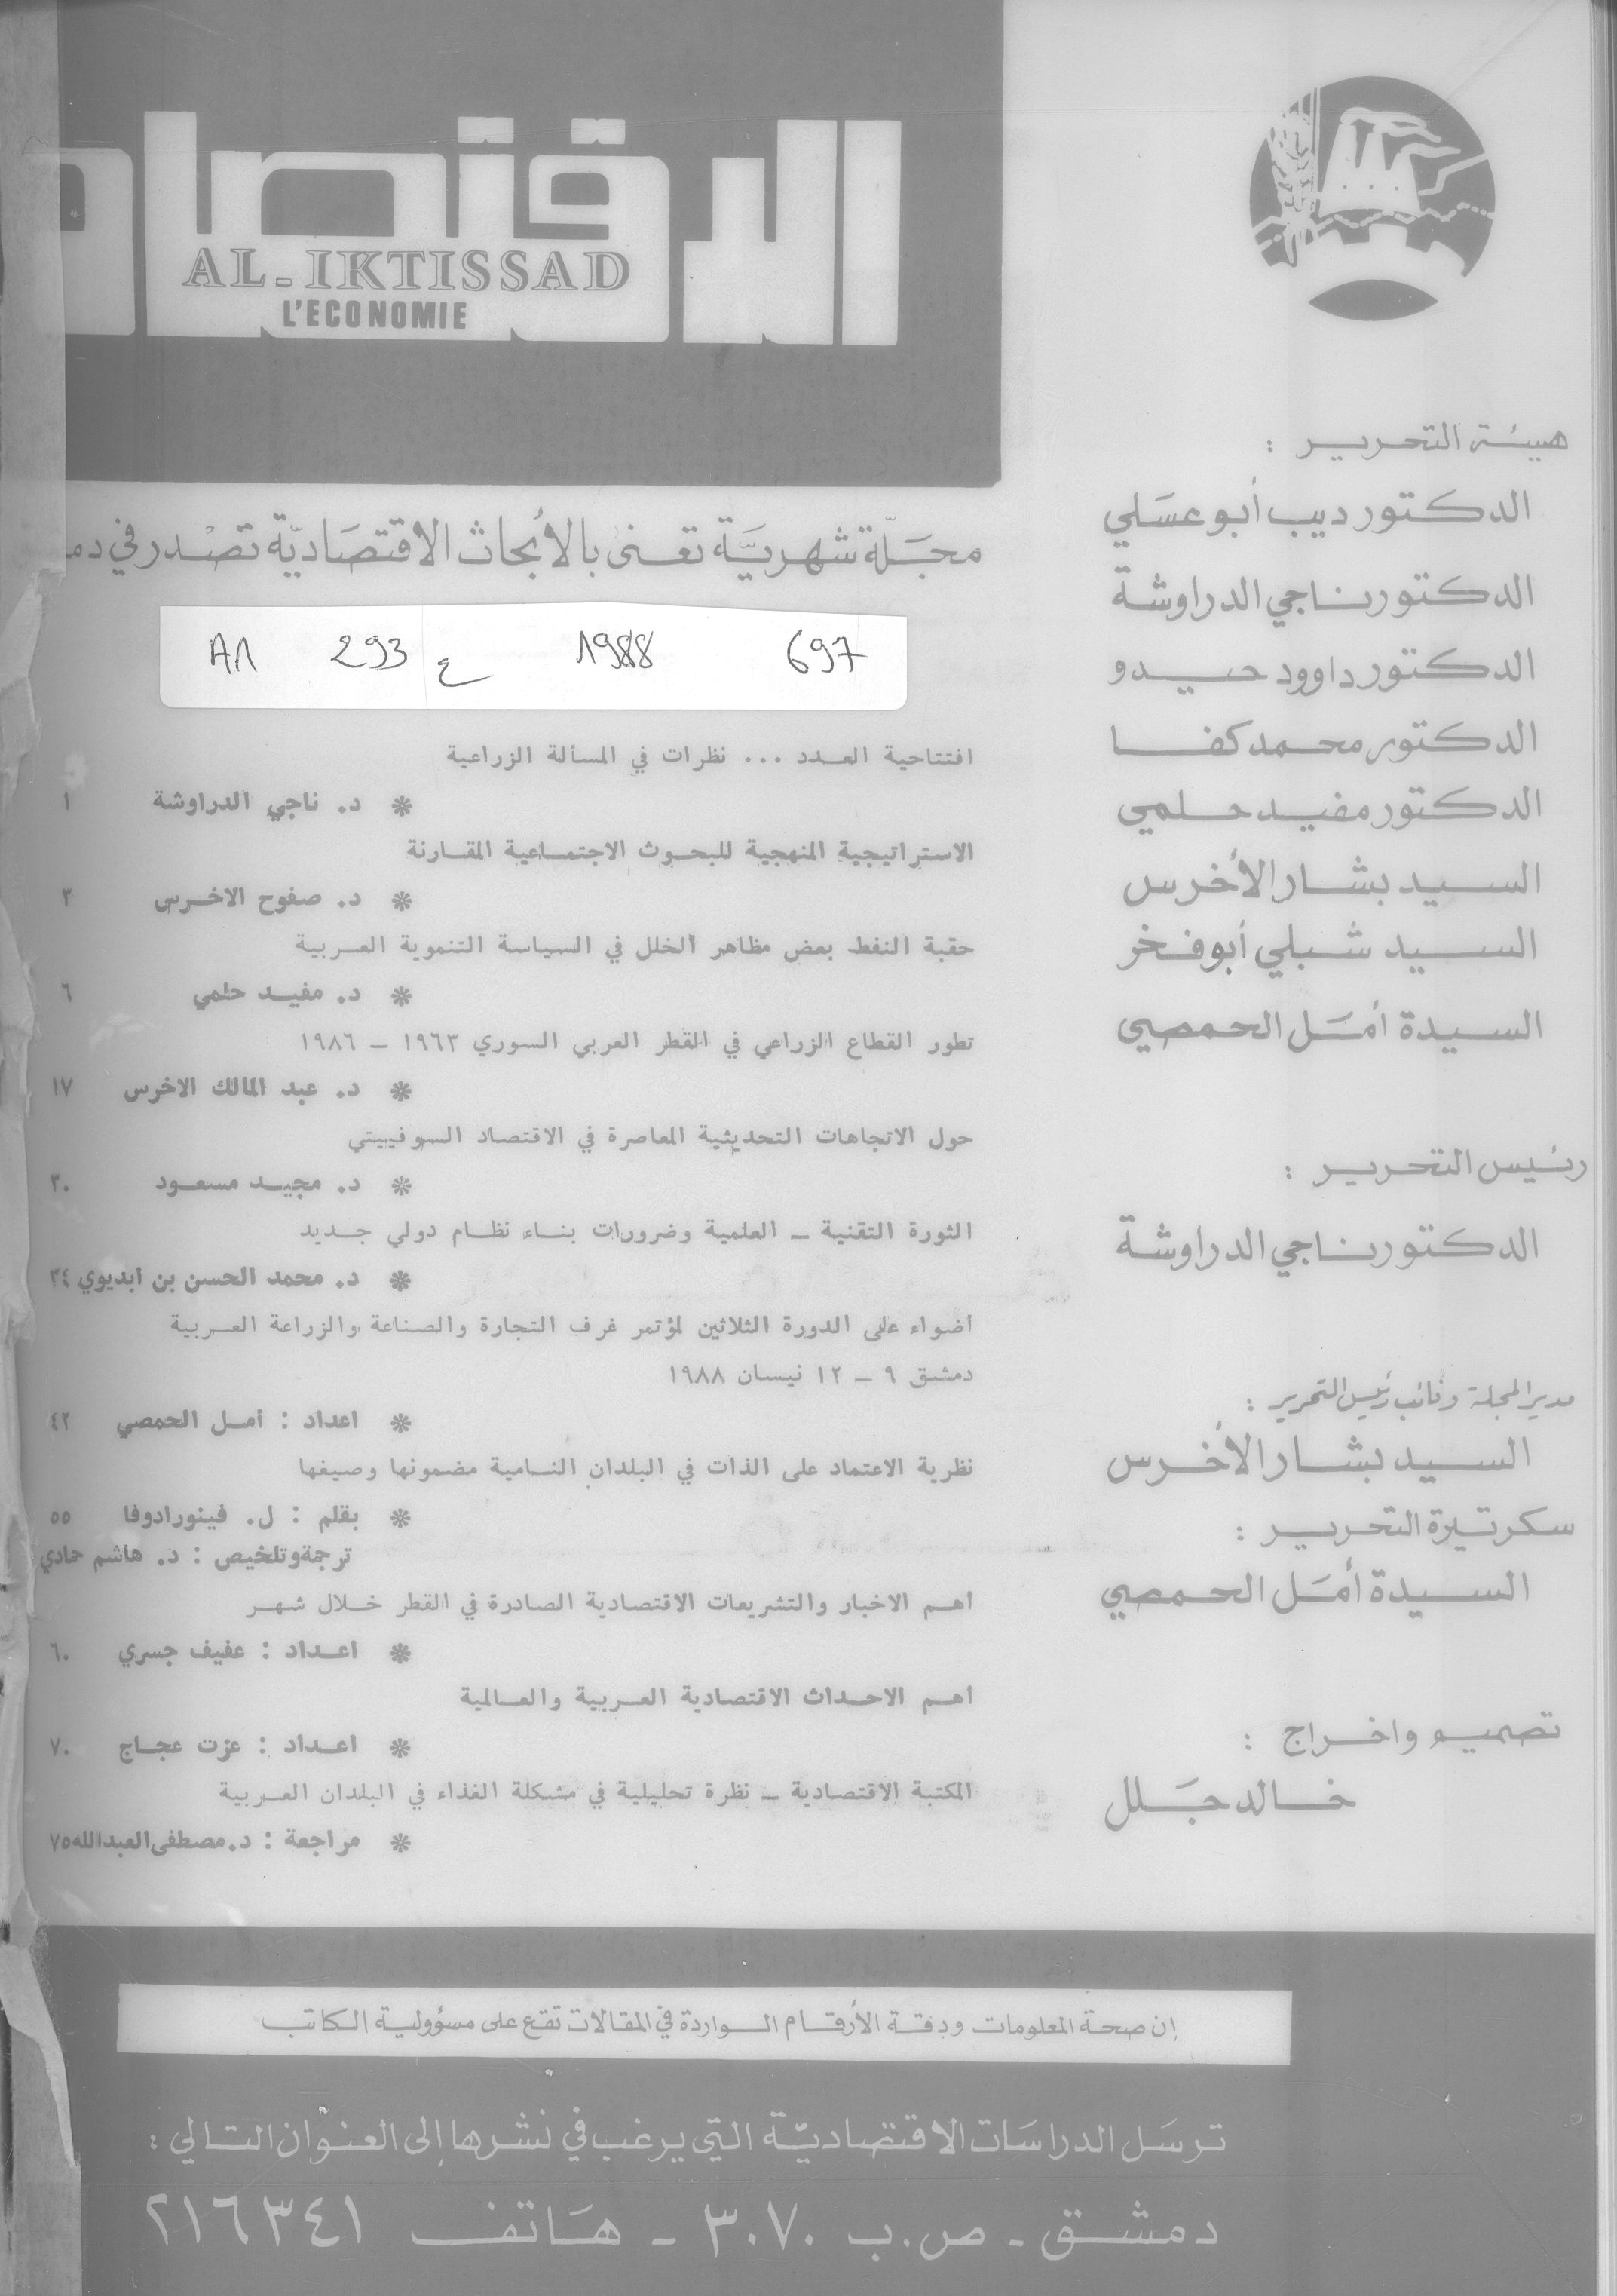 الاقتصاد
AL-IKTISSAD
L'ECONOMIE
مجلة شهرية تعنى بالأبحاث الاقتصادية تصدر في دم
697 1988 ع 293 AA
هيئة التحرير :
الدكتور ديب أبو عسلي
الدكتور ناجي الدراوشة
الدكتور داوود حيدو
الدكتور محمد كفا
الدكتور مفيد حلمي
السيد بشار الأخرس
السيد شبلي أبو فخر
السيدة أمل الحمصي
رئيس التحرير :
الدكتور ناجي الدراوشة
مدير المجلة ونائب رئيس التحرير :
السيد بشار الأخرس
سكرتيرة التحرير :
السيدة أمل الحمصي
تصميم واخراج :
خالد جلل
افتتاحية العدد ... نظرات في المسألة الزراعية
* د. ناجي الدراوشة ١
الاستراتيجية المنهجية للبحوث الاجتماعية المقارنة
* د. صفوح الاخرس ٣
حقبة النفط بعض مظاهر الخلل في السياسة التنموية العربية
* د. مفيد حلمي ٦
تطور القطاع الزراعي في القطر العربي السوري ١٩٦٣ – ١٩٨٦
* د. عبد المالك الاخرس ١٧
حول الاتجاهات التحديثية المعاصرة في الاقتصاد السوفييتي
* د. مجيد مسعود ٣٠
الثورة التقنية – العلمية وضرورات بناء نظام دولي جديد
* د. محمد الحسن بن ابديوي ٣٤
أضواء على الدورة الثلاثين لمؤتمر غرف التجارة والصناعة والزراعة العربية
دمشق ٩ – ١٢ نيسان ١٩٨٨
* اعداد : أمل الحمصي ٤٢
نظرية الاعتماد على الذات في البلدان النامية مضمونها وصيغها
* بقلم : ل. فينورادوفا ٥٥
ترجمة وتلخيص : د. هاشم حمادي
أهم الاخبار والتشريعات الاقتصادية الصادرة في القطر خلال شهر
* اعداد : عفيف جسري ٦٠
أهم الاحداث الاقتصادية العربية والعالمية
* اعداد : عزت عجاج ٧٠
المكتبة الاقتصادية – نظرة تحليلية في مشكلة الغذاء في البلدان العربية
* مراجعة : د. مصطفى العبدالله ٧٥
إن صحة المعلومات ودقة الأرقام الواردة في المقالات تقع على مسؤولية الكاتب
ترسل الدراسات الاقتصادية التي يرغب في نشرها إلى العنوان التالي :
دمشق - ص.ب ٣٠٧٠ - هاتف ٢١٦٣٤١